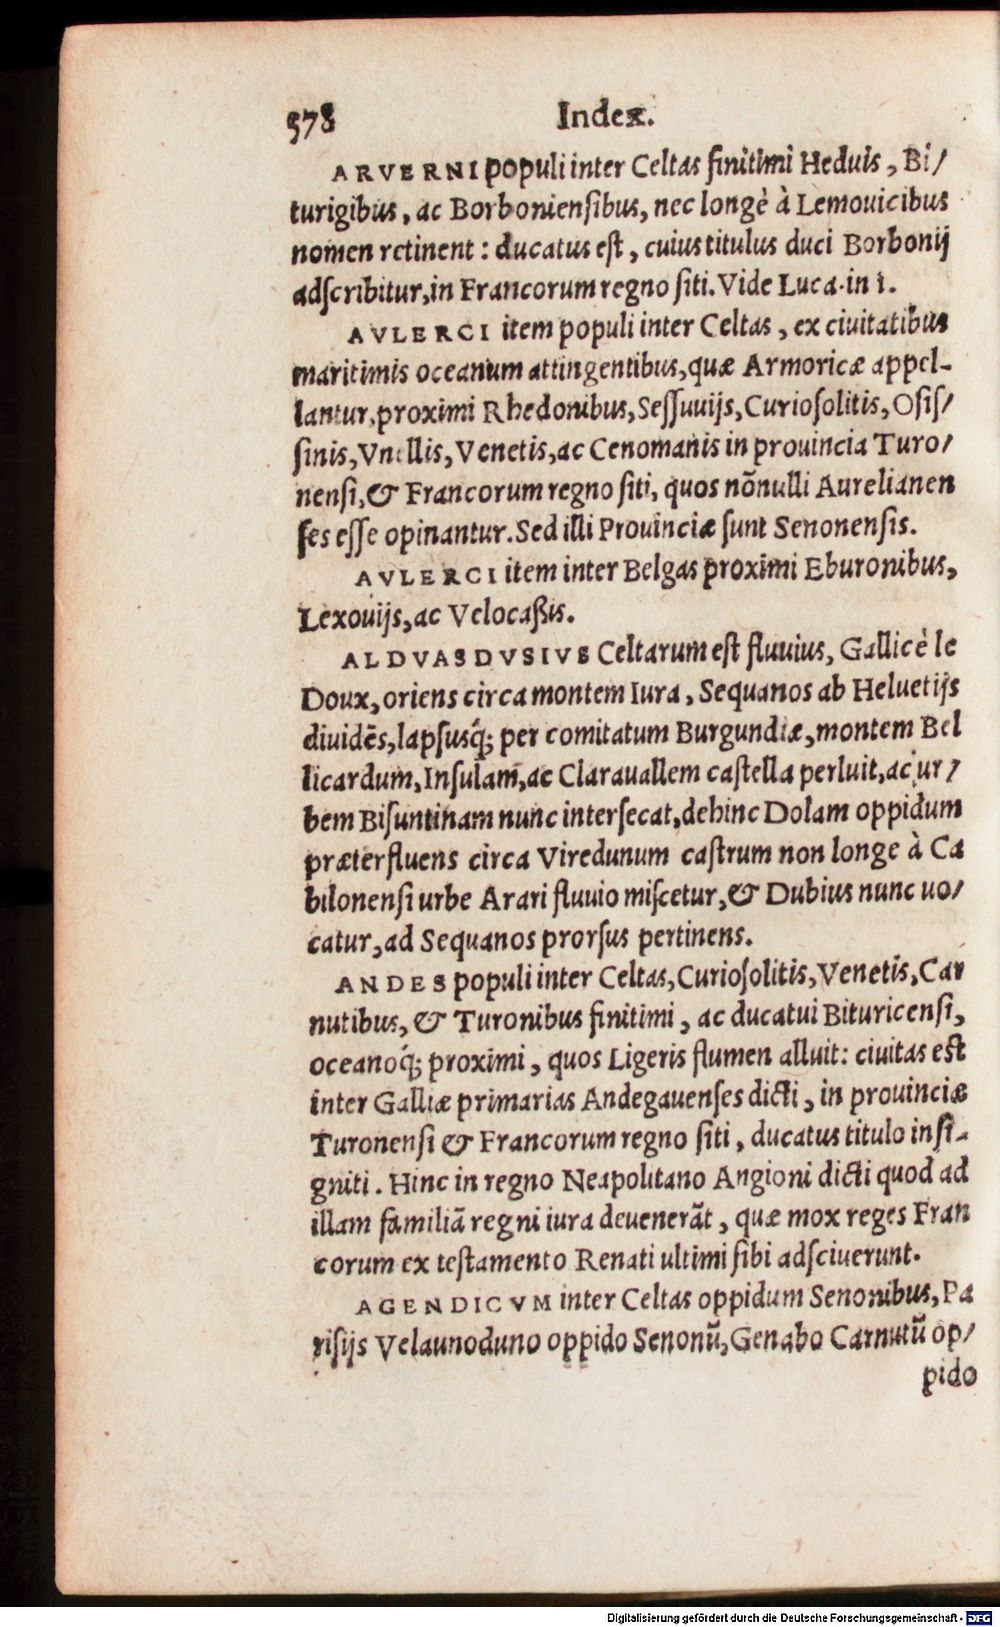 578 Index.
ARVERNI populi inter Celtas finitimi Heduis, Bi/
turigibus, ac Borboniensibus, nec longè à Lemouicibus
nomen retinent: ducatus est, cuius titulus duci Borbonij
adscribitur, in Francorum regno siti. Vide Luca. in 1.
AVLERCI item populi inter Celtas, ex ciuitatibus
maritimis oceanum attingentibus, quæ Armoricæ appel-
lantur, proximi Rhedonibus, Sessuuijs, Curiosolitis, Osis/
sinis, Vnellis, Venetis, ac Cenomanis in prouincia Turo/
nensi, & Francorum regno siti, quos nõnulli Aurelianen
ses esse opinantur. Sed illi Prouinciæ sunt Senonensis.
AVLERCI item inter Belgas proximi Eburonibus,
Lexouijs, ac Velocaßis.
ALDVASDVSIVS Celtarum est fluuius, Gallicè le
Doux, oriens circa montem Iura, Sequanos ab Heluetijs
diuidẽs, lapsusq́; per comitatum Burgundiæ, montem Bel
licardum, Insulam, ac Clarauallem castella perluit, ac ur/
bem Bisuntinam nunc intersecat, dehinc Dolam oppidum
præterfluens circa Viredunum castrum non longe à Ca
bilonensi urbe Arari fluuio miscetur, & Dubius nunc uo/
catur, ad Sequanos prorsus pertinens.
ANDES populi inter Celtas, Curiosolitis, Venetis, Car
nutibus, & Turonibus finitimi, ac ducatui Bituricensi,
oceanoq́; proximi, quos Ligeris flumen alluit: ciuitas est
inter Galliæ primarias Andegauenses dicti, in prouinciæ
Turonensi & Francorum regno siti, ducatus titulo insi-
gniti. Hinc in regno Neapolitano Angioni dicti quod ad
illam familiã regni iura deuenerãt, quæ mox reges Fran
corum ex testamento Renati ultimi sibi adsciuerunt.
AGENDICVM inter Celtas oppidum Senonibus, Pa
risijs Velaunoduno oppido Senonũ, Genabo Carnutũ op/
pido
Digitalisierung gefördert durch die Deutsche Forschungsgemeinschaft - DFG